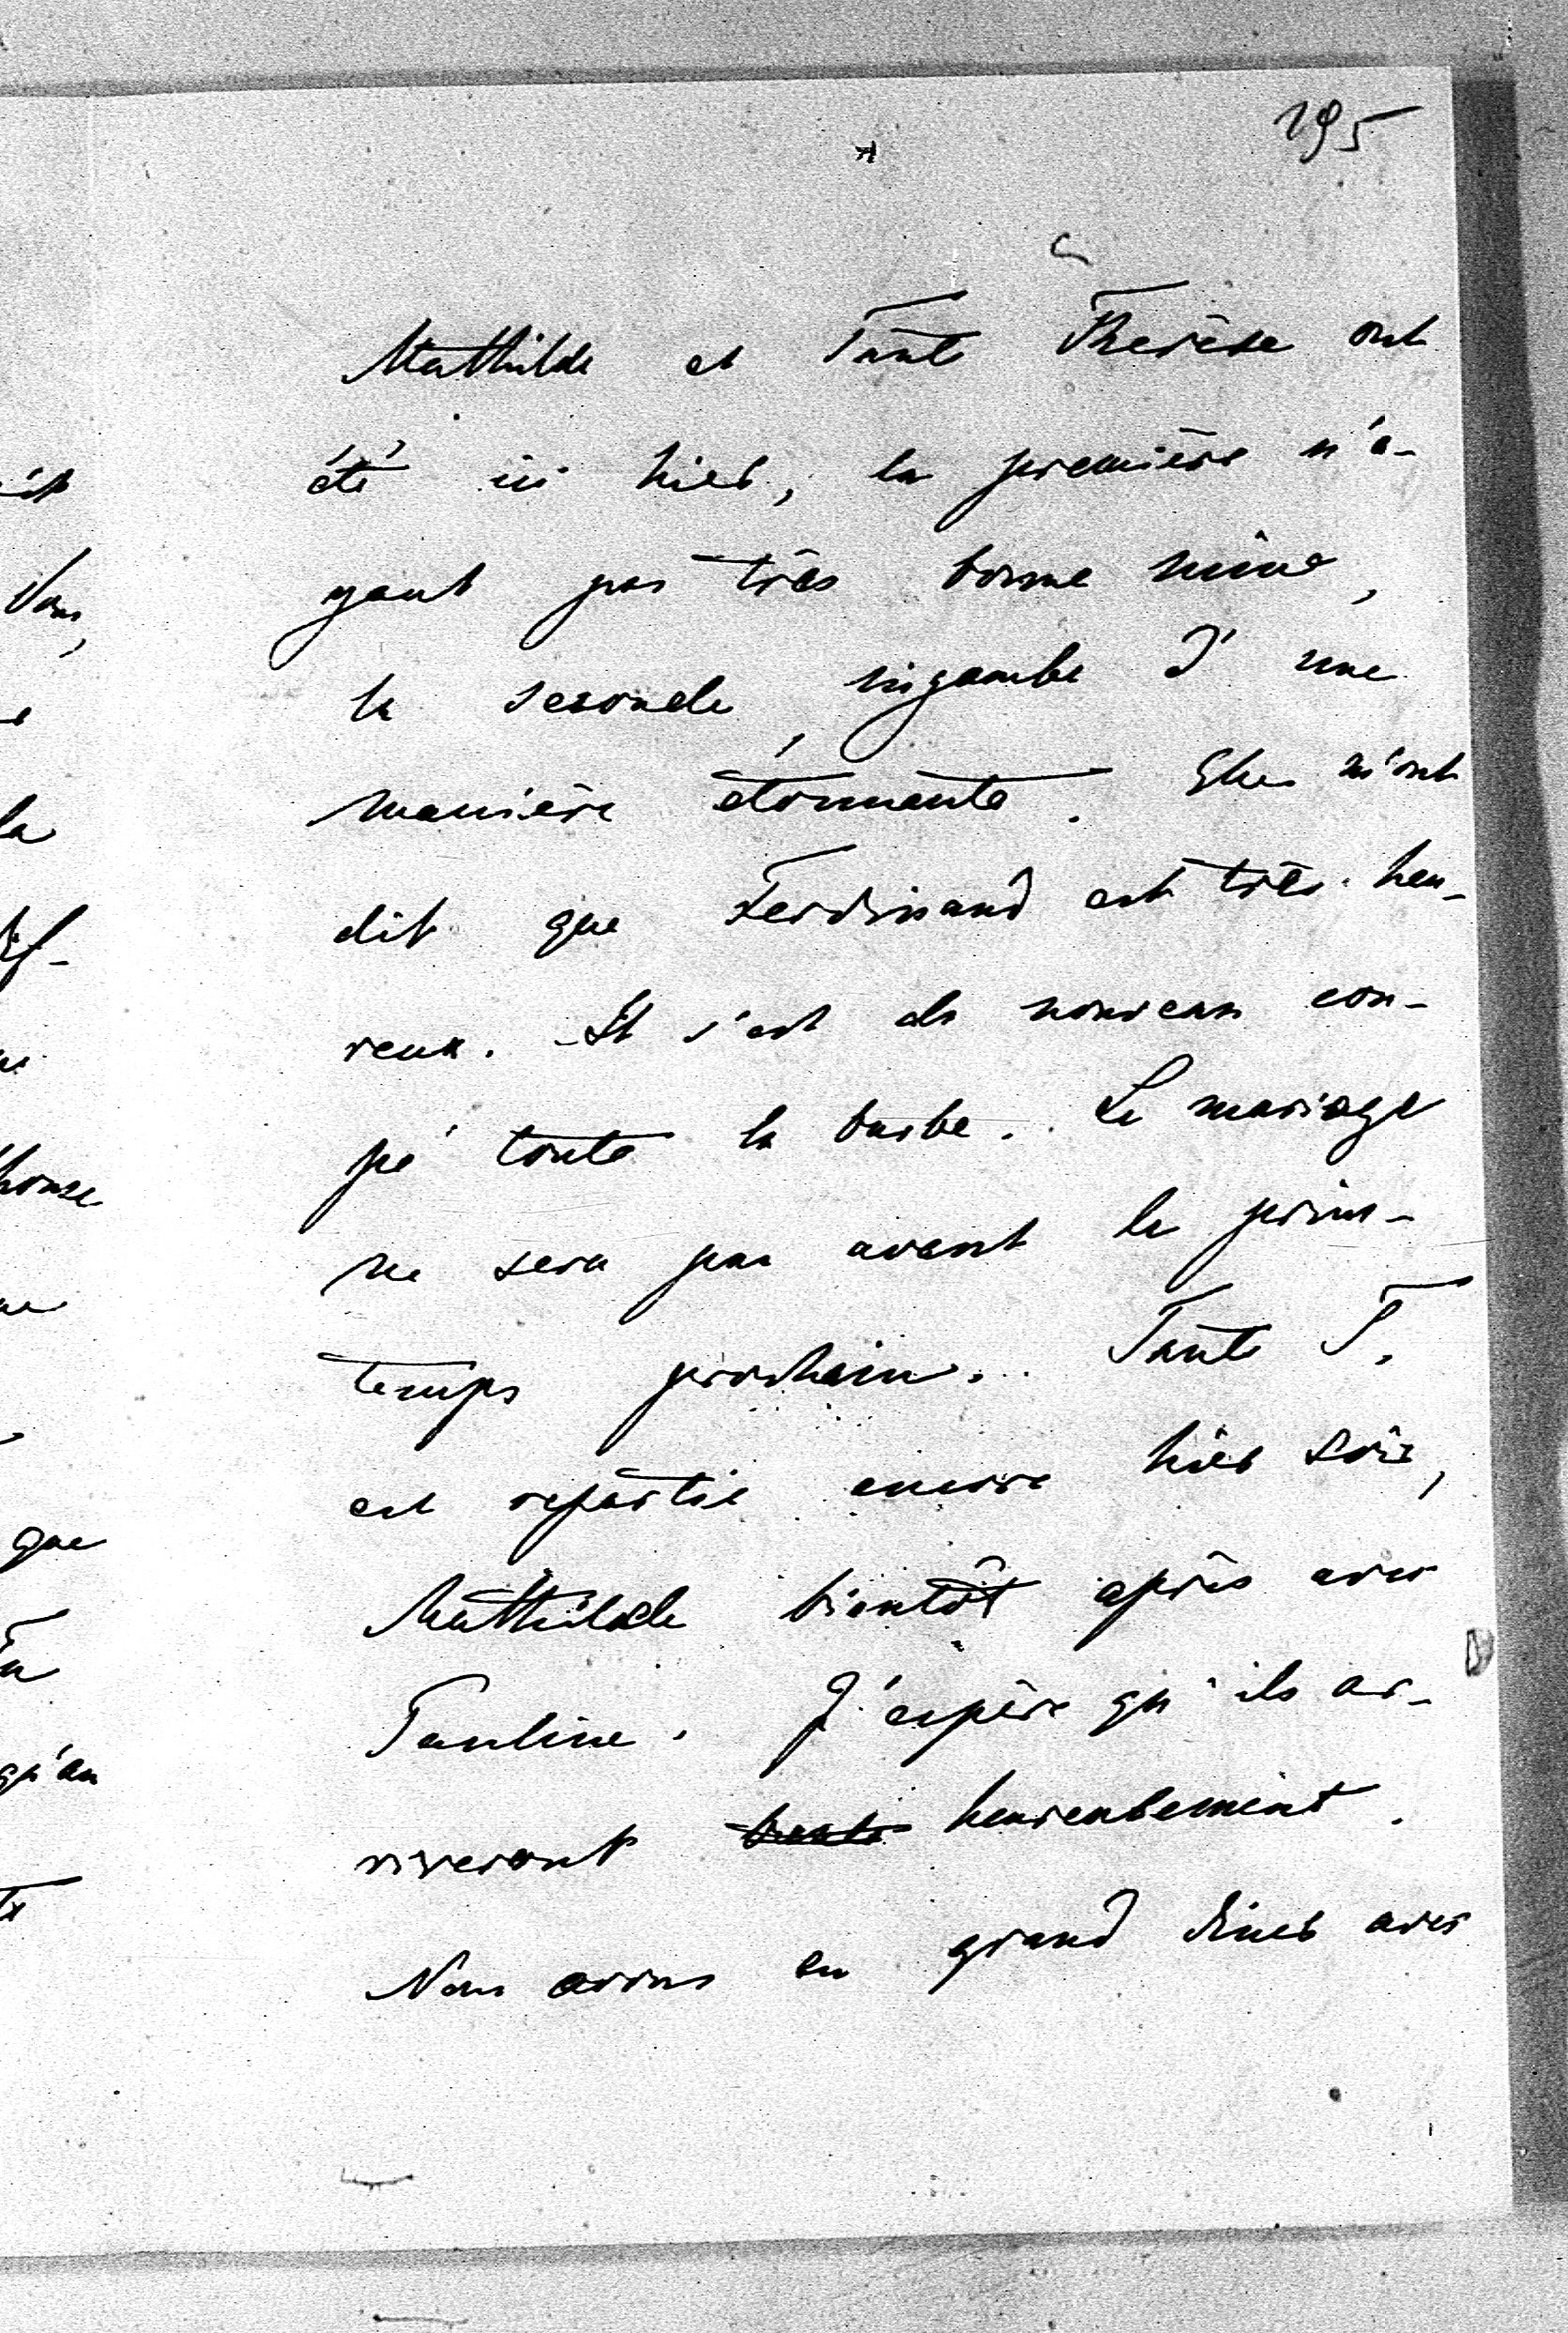 195
Mathilde et Tante Thérèse ont
été ici hier, la première n'a-
yant pas très bonne mine,
la seconde, ingambe d'une
manière étonnante. Elles m'ont
dit que Ferdinand est très heu-
reux. Il s'est de nouveau cou-
pé toute la barbe. Le mariage
ne sera pas avant le prin-
temps prochain. Tante T.
est repartie encore hier soir,
Mathilde bientôt après avec
Pauline. J'espère qu'ils ar-
riveront heureusement.
Nous avons eu grand dîner avec